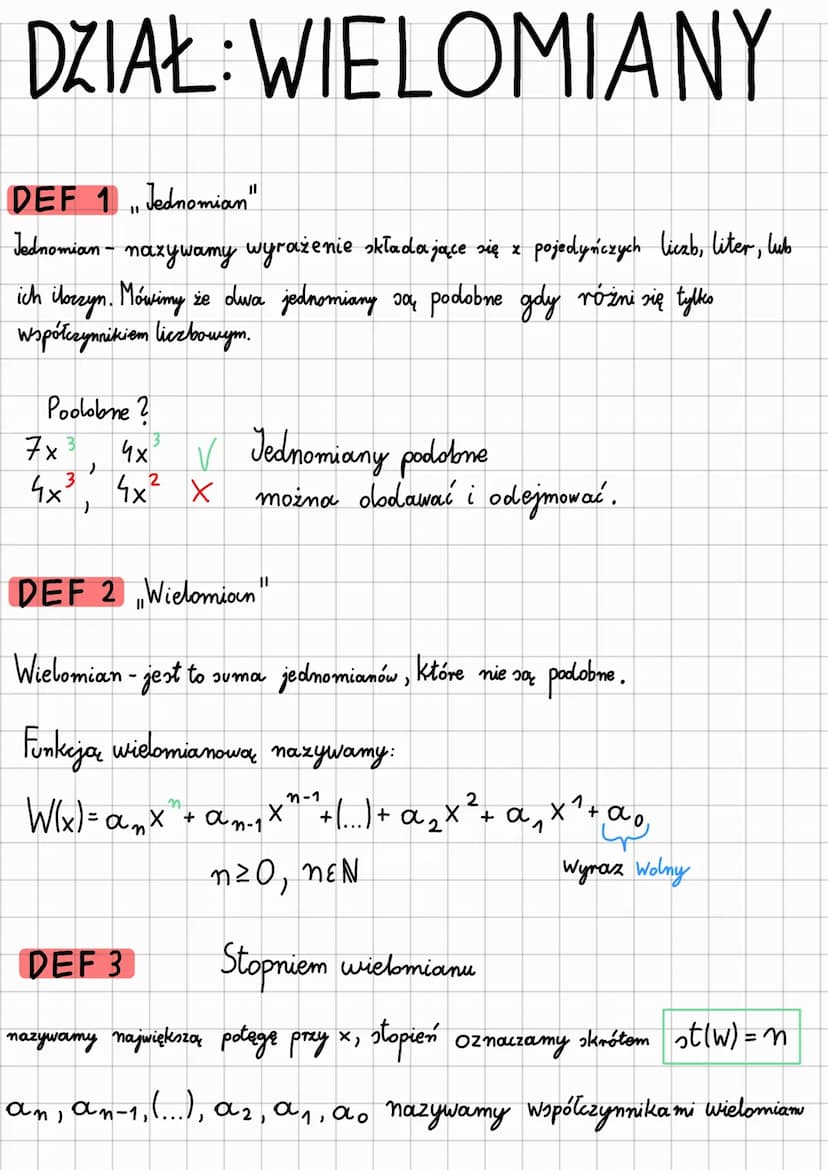 DZIAŁ: WIELOMIANY
DEF 1 „Jednomian"
Jednomian - nazywamy wyrażenie składające się z pojedyńczych liczb, liter, lub
ich iloczyn. Mówimy że dwa jednomiany są podobne gdy różni się tylko
współczynnikiem liczbowym.
Podobne?
7x³, 4x³ √ Jednomiany podobne
4x³, 4x² X można dodawać i odejmować.
DEF 2 „Wielomian"
Wielomian - jest to suma jednomianów, które nie są podobne.
Funkcją wielomianową nazywamy:
W(x) = aₙxⁿ + aₙ₋₁xⁿ⁻¹ + (...) + a₂x² + a₁x¹ + a₀
n ≥ 0, n ∈ N wyraz wolny
DEF 3 Stopniem wielomianu
nazywamy największą potęgę przy x, stopień oznaczamy skrótem st(w) = n
aₙ, aₙ₋₁, (...), a₂, a₁, a₀ nazywamy współczynnikami wielomianu